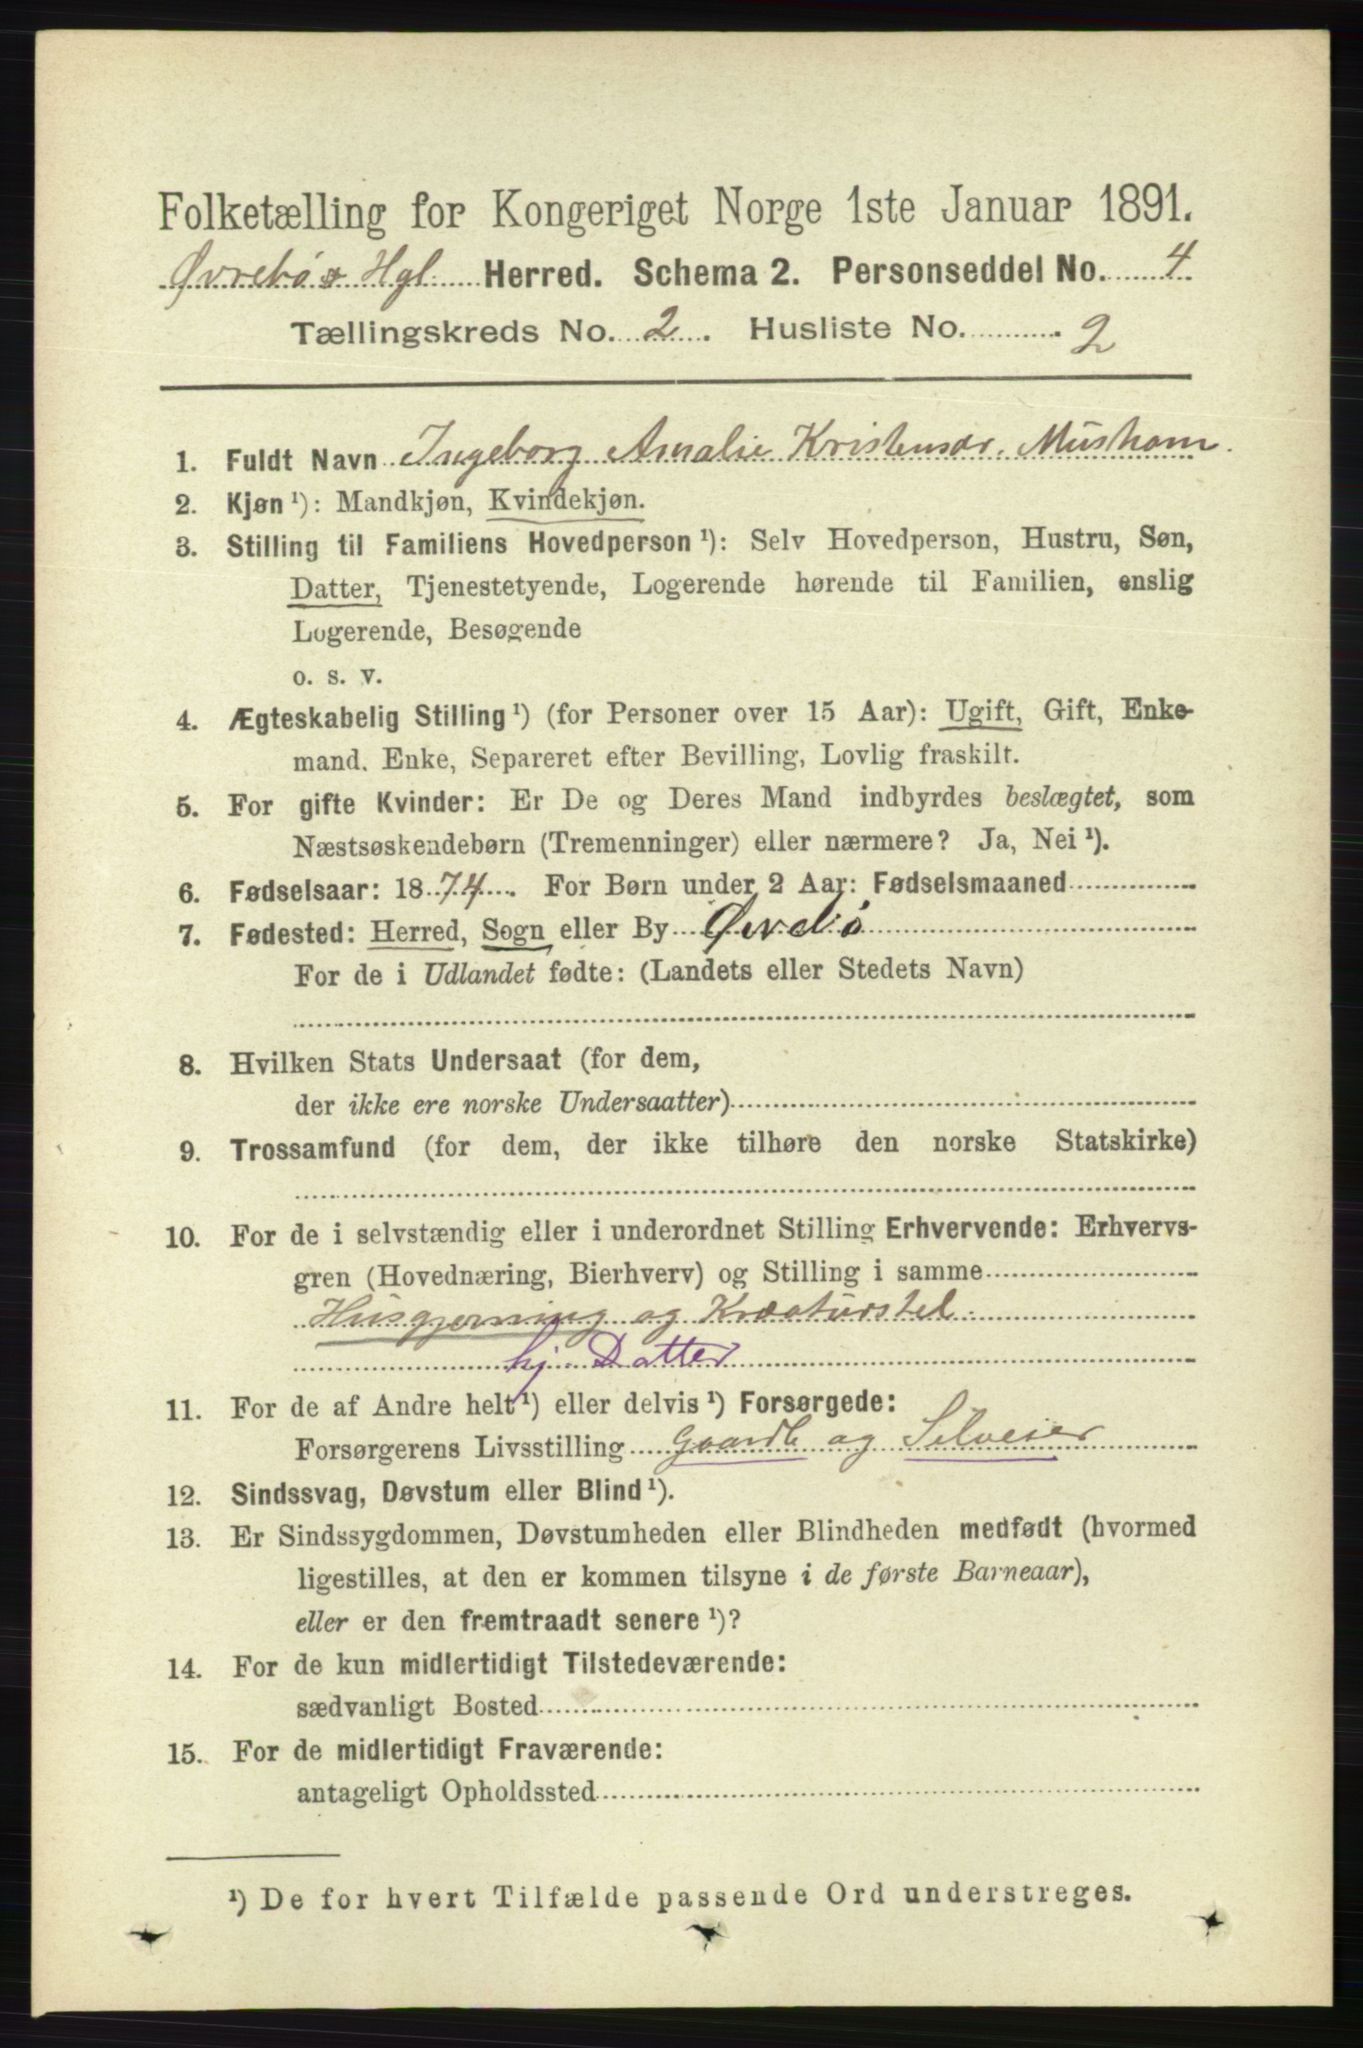 Folketælling for Kongeriget Norge 1ste Januar 1891.
Øvrebø & Hgl. Herred. Schema 2. Personseddel No. 4
Tællingskreds No. 2. Husliste No. 2
1. Fuldt Navn Ingeborg Amalie Kristensdr. Mushom.
2. Kjøn ¹): Mandkjøn, Kvindekjøn.
3. Stilling til Familiens Hovedperson ¹): Selv Hovedperson, Hustru, Søn,
Datter, Tjenestetyende, Logerende hørende til Familien, enslig
Logerende, Besøgende
o. s. v.
4. Ægteskabelig Stilling ¹) (for Personer over 15 Aar): Ugift, Gift, Enke-
mand. Enke, Separeret efter Bevilling, Lovlig fraskilt.
5. For gifte Kvinder: Er De og Deres Mand indbyrdes beslægtet, som
Næstsøskendebørn (Tremenninger) eller nærmere? Ja, Nei ¹).
6. Fødselsaar: 1874. For Børn under 2 Aar: Fødselsmaaned
7. Fødested: Herred, Sogn eller By Øvrebø
For de i Udlandet fødte: (Landets eller Stedets Navn)
8. Hvilken Stats Undersaat (for dem,
der ikke ere norske Undersaatter)
9. Trossamfund (for dem, der ikke tilhøre den norske Statskirke)
10. For de i selvstændig eller i underordnet Stilling Erhvervende: Erhvervs-
gren (Hovednæring, Bierhverv) og Stilling i samme
Husgjerning og Kreaturstel.
hj. Datter
11. For de af Andre helt ¹) eller delvis ¹) Forsørgede:
Forsørgerens Livsstilling Gaardb og Selveier
12. Sindssvag, Døvstum eller Blind ¹).
13. Er Sindssygdommen, Døvstumheden eller Blindheden medfødt (hvormed
ligestilles, at den er kommen tilsyne i de første Barneaar),
eller er den fremtraadt senere ¹)?
14. For de kun midlertidigt Tilstedeværende:
sædvanligt Bosted
15. For de midlertidigt Fraværende:
antageligt Opholdssted
¹) De for hvert Tilfælde passende Ord understreges.